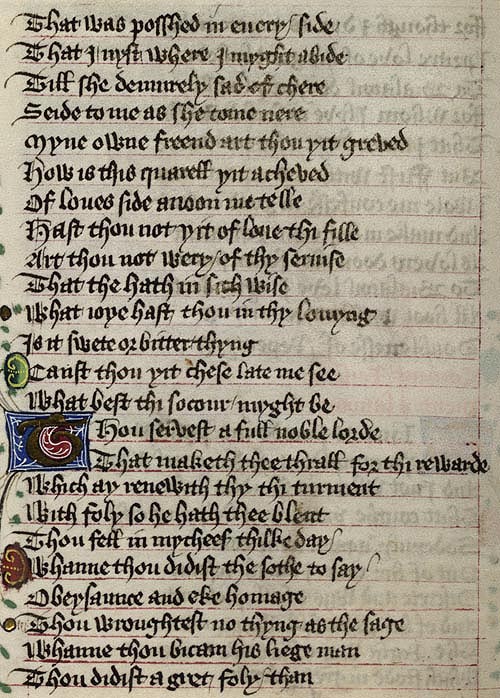 That was posshed in euery / side
That I nyst where I myght abide
Till she demurely sad of chere
Seide to me as she come nere
Myne owne freend art thou yit greved
How is this quarell yit acheved
Of loves side anoon me telle
Hast thou not yit of loue thi fille
Art thou not wery / of thy seruise
That the hath in sich wise
What ioye hast thou in thy louyng
Is it swete or bitter thyng
Canst thou yit chese late me see
What best thi socour / myght be
Thou servest a full noble lorde
That maketh thee thrall for thi rewarde
Which ay renewith thy thi turment
With foly so he hath thee blent
Thou fell in mycheef thilke day /
Whanne thou didist the sothe to say /
Obeysaunce and eke homage
Thou wroughtest no thyng as the sage
Whanne thou bicam his liege man
Thou didist a gret foly / than